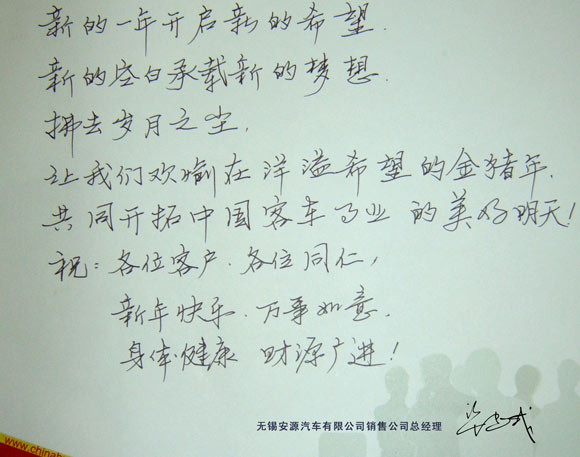 新的一年开启新的希望.
新的空白承载新的梦想.
拂去岁月之尘,
让我们欢愉在洋溢希望的金猪年.
共同开拓中国客车事业的美好明天!
祝:各位客户.各位同仁,
新年快乐.万事如意.
身体健康 财源广进!
无锡安源汽车有限公司销售公司总经理
www.chinab